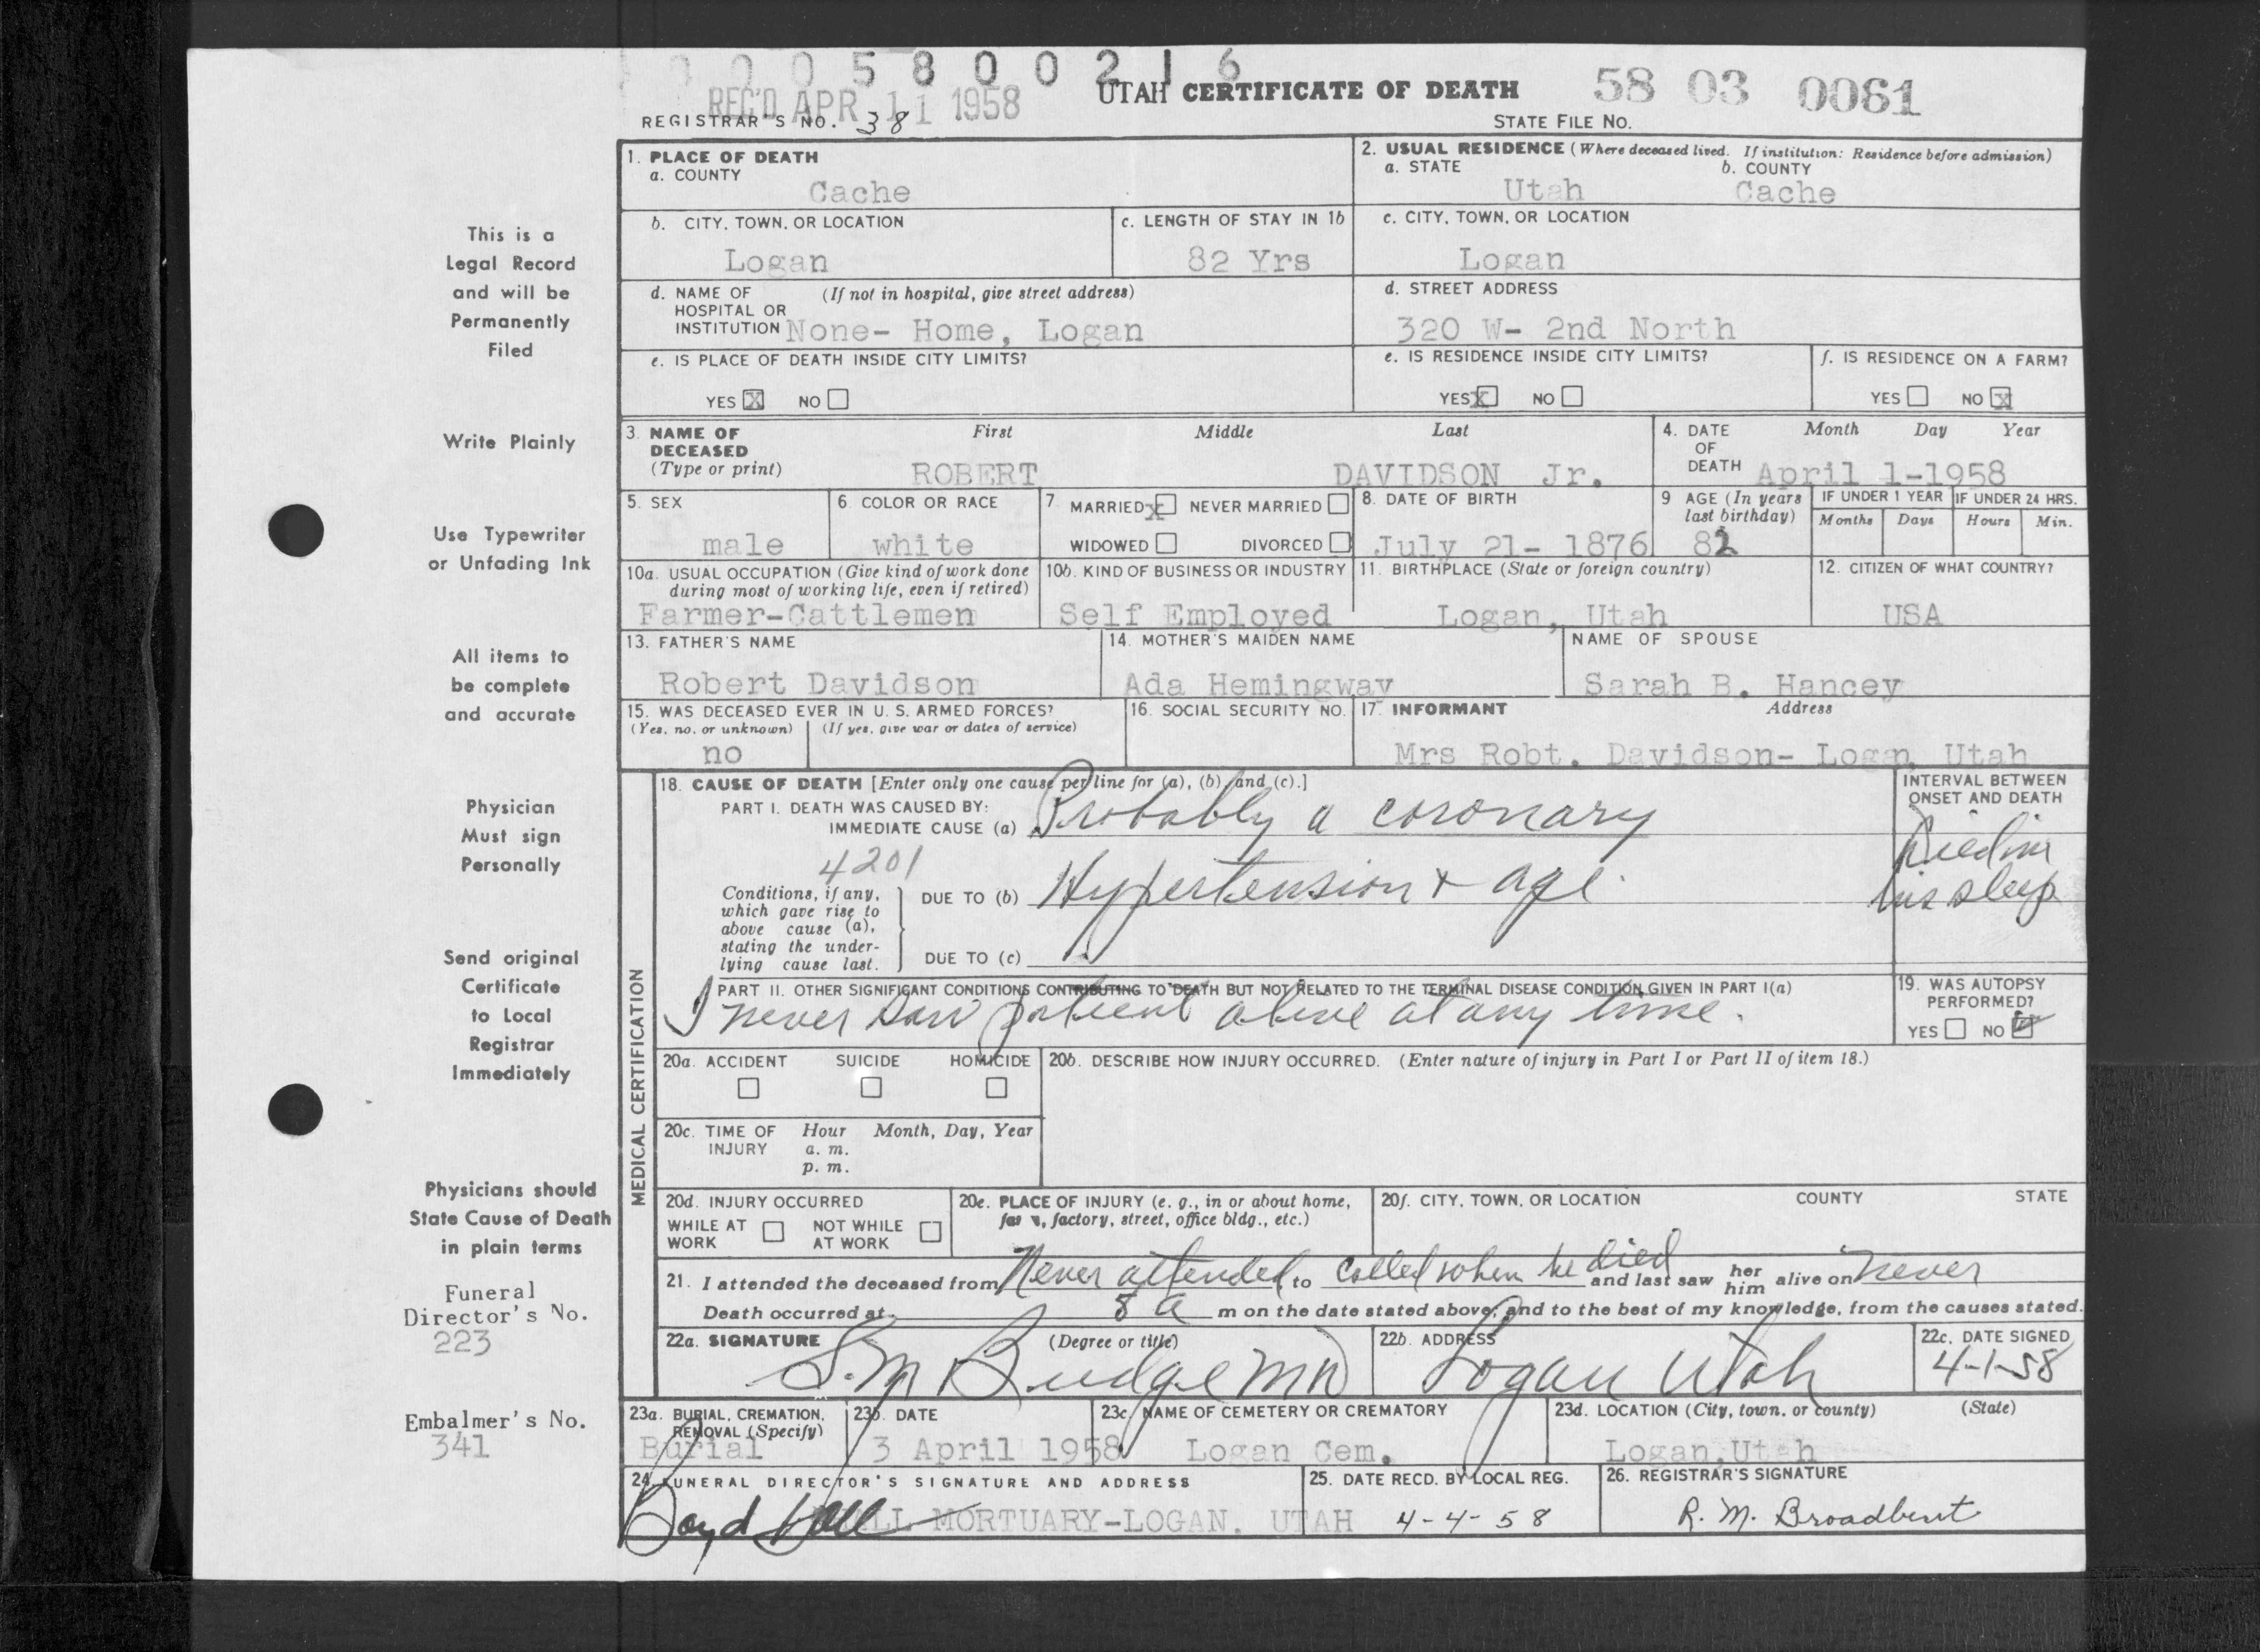 0005800216
REC'D APR 11 1958
UTAH CERTIFICATE OF DEATH
58 03 0061
REGISTRAR'S NO. 38
STATE FILE NO.
This is a
Legal Record
and will be
Permanently
Filed
Write Plainly
Use Typewriter
or Unfading Ink
All items to
be complete
and accurate
Physician
Must sign
Personally
Send original
Certificate
to Local
Registrar
Immediately
Physicians should
State Cause of Death
in plain terms
Funeral
Director's No.
223
Embalmer's No.
341
1. PLACE OF DEATH
a. COUNTY
Cache
2. USUAL RESIDENCE (Where deceased lived. If institution: Residence before admission)
a. STATE b. COUNTY
Utah Cache
b. CITY, TOWN, OR LOCATION
Logan
c. LENGTH OF STAY IN 1b
82 Yrs
c. CITY, TOWN, OR LOCATION
Logan
d. NAME OF (If not in hospital, give street address)
HOSPITAL OR
INSTITUTION None- Home, Logan
d. STREET ADDRESS
320 W- 2nd North
e. IS PLACE OF DEATH INSIDE CITY LIMITS?
YES X NO
e. IS RESIDENCE INSIDE CITY LIMITS?
YES X NO
f. IS RESIDENCE ON A FARM?
YES NO X
3. NAME OF First Middle Last
DECEASED
(Type or print) ROBERT DAVIDSON Jr.
4. DATE Month Day Year
OF
DEATH April 1-1958
5. SEX
male
6. COLOR OR RACE
white
7. MARRIED X NEVER MARRIED
WIDOWED DIVORCED
8. DATE OF BIRTH
July 21- 1876
9 AGE (In years
last birthday)
IF UNDER 1 YEAR IF UNDER 24 HRS.
Months Days Hours Min.
10a. USUAL OCCUPATION (Give kind of work done
during most of working life, even if retired)
Farmer-Cattlemen
10b. KIND OF BUSINESS OR INDUSTRY
Self Employed
11. BIRTHPLACE (State or foreign country)
Logan, Utah
12. CITIZEN OF WHAT COUNTRY?
USA
13. FATHER'S NAME
Robert Davidson
14. MOTHER'S MAIDEN NAME
Ada Hemingway
NAME OF SPOUSE
Sarah B. Hancey
15. WAS DECEASED EVER IN U. S. ARMED FORCES?
(Yes, no, or unknown) (If yes, give war or dates of service)
no
16. SOCIAL SECURITY NO.
17. INFORMANT Address
Mrs Robt. Davidson- Logan, Utah
MEDICAL CERTIFICATION
18. CAUSE OF DEATH [Enter only one cause per line for (a), (b) and (c).]
PART I. DEATH WAS CAUSED BY:
IMMEDIATE CAUSE (a) Probably a coronary
INTERVAL BETWEEN
ONSET AND DEATH
Died in
his sleep
4201
Conditions, if any,
which gave rise to
above cause (a),
stating the under-
lying cause last.
DUE TO (b) Hypertension + age.
DUE TO (c)
PART II. OTHER SIGNIFICANT CONDITIONS CONTRIBUTING TO DEATH BUT NOT RELATED TO THE TERMINAL DISEASE CONDITION GIVEN IN PART I(a)
I never saw patient alive at any time.
19. WAS AUTOPSY
PERFORMED?
YES NO
20a. ACCIDENT SUICIDE HOMICIDE
20b. DESCRIBE HOW INJURY OCCURRED. (Enter nature of injury in Part I or Part II of item 18.)
20c. TIME OF Hour Month, Day, Year
INJURY a. m.
p. m.
20d. INJURY OCCURRED
WHILE AT NOT WHILE
WORK AT WORK
20e. PLACE OF INJURY (e. g., in or about home,
factory, street, office bldg., etc.)
20f. CITY, TOWN, OR LOCATION COUNTY STATE
21. I attended the deceased from Never attended to called when he died and last saw her him alive on never
Death occurred at 8 a m on the date stated above, and to the best of my knowledge, from the causes stated.
22a. SIGNATURE (Degree or title)
S.M Budge MD
22b. ADDRESS
Logan Utah
22c. DATE SIGNED
4-1-58
23a. BURIAL, CREMATION,
REMOVAL (Specify)
Burial
23b. DATE
3 April 1958
23c. NAME OF CEMETERY OR CREMATORY
Logan Cem.
23d. LOCATION (City, town, or county) (State)
Logan, Utah
24. FUNERAL DIRECTOR'S SIGNATURE AND ADDRESS
Boyd Hall MORTUARY-LOGAN, UTAH
25. DATE RECD. BY LOCAL REG.
4-4-58
26. REGISTRAR'S SIGNATURE
R. M. Broadbent